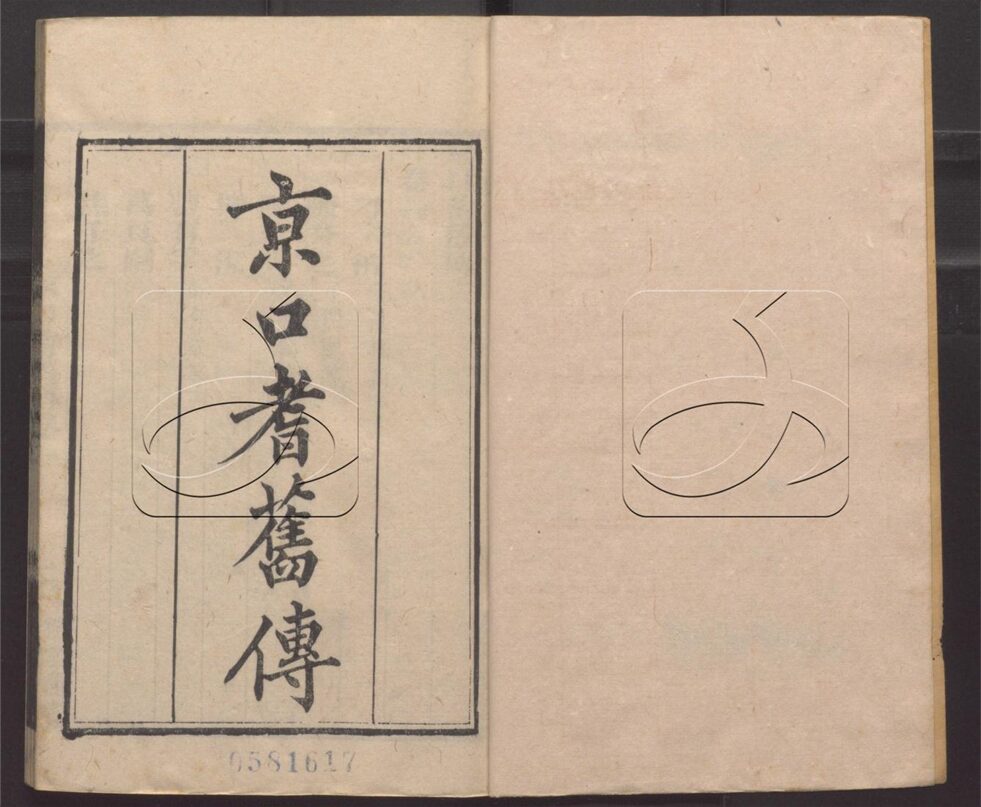 京口耆舊傳
0581617